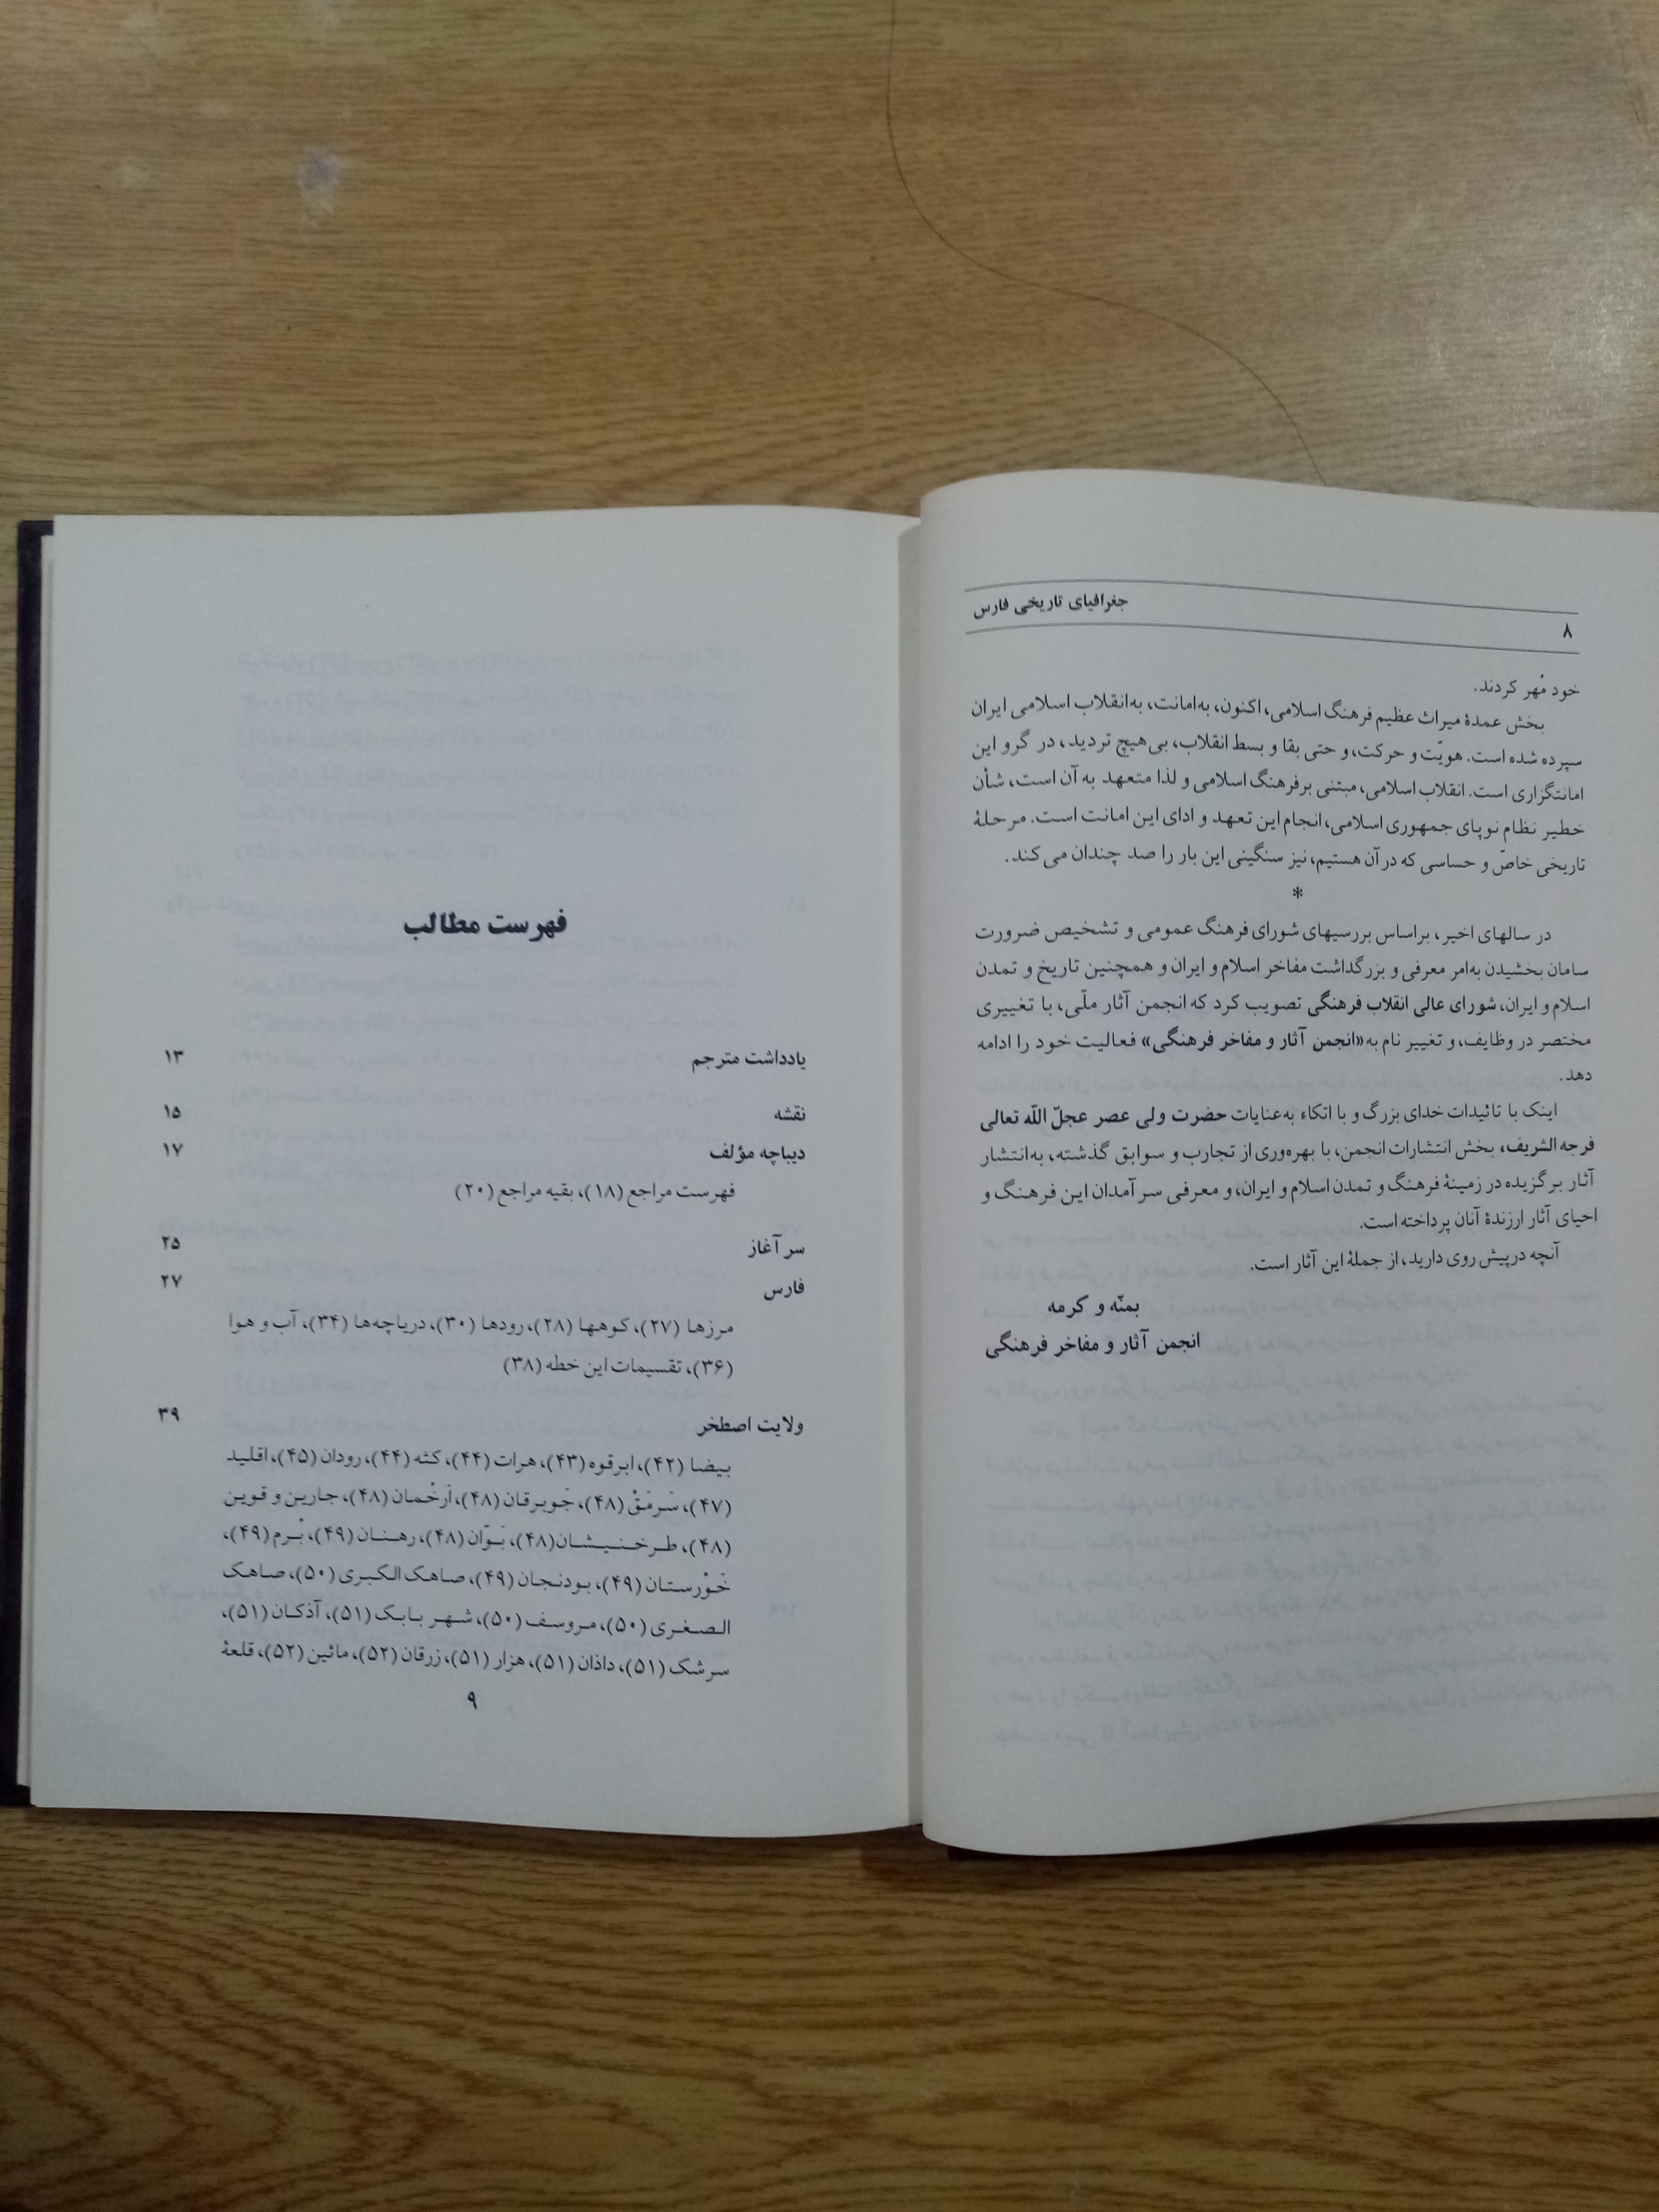 جغرافیای تاریخی فارس
۸
خود مُهر کردند.
بخش عمدهٔ میراث عظیم فرهنگ اسلامی، اکنون، به‌امانت، به‌انقلاب اسلامی ایران
سپرده شده است. هویّت و حرکت، و حتی بقا و بسط انقلاب، بی‌هیچ تردید، در گرو این
امانتگزاری است. انقلاب اسلامی، مبتنی برفرهنگ اسلامی و لذا متعهد به آن است، شأن
خطیر نظام نوپای جمهوری اسلامی، انجام این تعهد و ادای این امانت است. مرحلهٔ
تاریخی خاصّ و حساسی که در آن هستیم، نیز سنگینی این بار را صد چندان می‌کند.
*
در سالهای اخیر، براساس بررسیهای شورای فرهنگ عمومی و تشخیص ضرورت
سامان بخشیدن به‌امر معرفی و بزرگداشت مفاخر اسلام و ایران و همچنین تاریخ و تمدن
اسلام و ایران، شورای عالی انقلاب فرهنگی تصویب کرد که انجمن آثار ملّی، با تغییری
مختصر در وظایف، و تغییر نام به «انجمن آثار و مفاخر فرهنگی» فعالیت خود را ادامه
دهد.
اینک با تائیدات خدای بزرگ و با اتکاء به‌عنایات حضرت ولی عصر عجلّ اللّه تعالی
فرجه الشریف، بخش انتشارات انجمن، با بهره‌وری از تجارب و سوابق گذشته، به‌انتشار
آثار برگزیده در زمینهٔ فرهنگ و تمدن اسلام و ایران، و معرفی سرآمدان این فرهنگ و
احیای آثار ارزندهٔ آنان پرداخته است.
آنچه درپیش روی دارید، از جملهٔ این آثار است.
بمنّه و کرمه
انجمن آثار و مفاخر فرهنگی
فهرست مطالب
یادداشت مترجم ۱۳
نقشه ۱۵
دیباچه مؤلف ۱۷
فهرست مراجع (۱۸)، بقیه مراجع (۲۰)
سرآغاز ۲۵
فارس ۲۷
مرزها (۲۷)، کوهها (۲۸)، رودها (۳۰)، دریاچه‌ها (۳۴)، آب و هوا
(۳۶)، تقسیمات این خطه (۳۸)
ولایت اصطخر ۳۹
بیضا (۴۲)، ابرقوه (۴۳)، هرات (۴۴)، کثه (۴۴)، رودان (۴۵)، اقلید
(۴۷)، سَرمَقْ (۴۸)، جَوبرقان (۴۸)، اَرخُمان (۴۸)، جارین و قوین
(۴۸)، طرخنیشان (۴۸)، بَوّان (۴۸)، رهنان (۴۹)، بُرم (۴۹)،
خَوْرستان (۴۹)، بودنجان (۴۹)، صاهک الکبری (۵۰)، صاهک
الصغری (۵۰)، مروسف (۵۰)، شهر بابک (۵۱)، آذکان (۵۱)،
سرشک (۵۱)، داذان (۵۱)، هزار (۵۱)، زرقان (۵۲)، مائین (۵۲)، قلعهٔ
۹